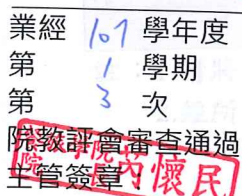 業經 107 學年度
第 1 學期
第 3 次
院教評會審查通過
主管簽章：